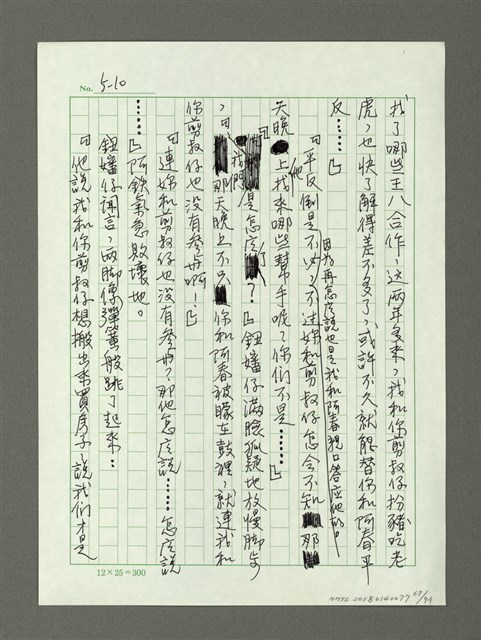 No. 5-10
找了哪些王八合作，這兩年多來，我和你剪叔仔扮豬吃老
虎，也快了解得差不多了，或許不久就能替你和阿春平
反……』
『平反倒是不必，因為再怎麼說也是我和阿春親口答應他的。不過妳和剪叔仔怎會不知那
天晚上他找來哪些幫手呢？你們不是……』
『我們是怎麼了？』鈕嬸仔滿臉狐疑地放慢腳步
，『那天晚上不只你和阿春被矇在鼓裡，就連我和
你剪叔仔也沒有參與啊！』
『連妳和剪叔仔也沒有參與？那他怎麼說……怎麼說
……』阿鉄氣急敗壞地。
鈕嬸仔聞言，兩腳像彈簧般跳了起來：
『他說我和你剪叔仔想搬出來買房子，說我們才是
12×25=300
NMTL 20180140077 67/94